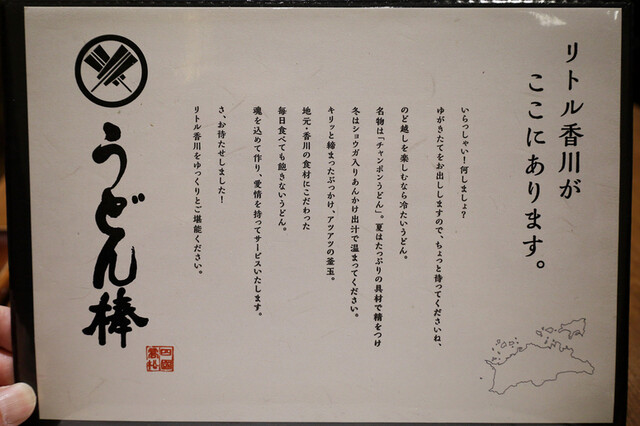 リトル香川が
ここにあります。
いらっしゃい!何しましょ?
ゆがきたてをお出ししますので、ちょっと待ってくださいね、
のど越しを楽しむなら冷たいうどん。
名物は「チャンポンうどん」。夏はたっぷりの具材で精をつけ
冬はショウガ入りあんかけ出汁で温まってください。
キリッと締まったぶっかけ、アツアツの釜玉。
地元・香川の食材にこだわった
毎日食べても飽きないうどん。
魂を込めて作り、愛情を持ってサービスいたします。
さ、お待たせしました!
リトル香川をゆっくりとご堪能ください。
うどん棒